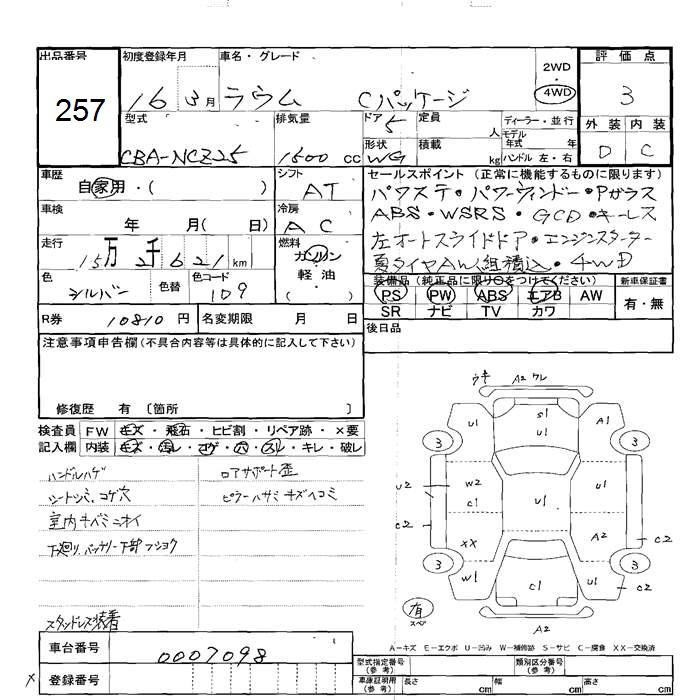 出品番号 初度登録年月 車名・グレード 2WD・4WD 評価点
257 16 3月 ラウム Cパッケージ 3
型式 排気量 ドア 5 定員 人 ディーラー・並行 外装 内装
モデル年式 年
CBA-NCZ25 1500 cc 形状 WG 積載 kg ハンドル 左・右 D C
車歴 シフト セールスポイント (正常に機能するものに限ります)
自家用・( ) AT パワステ・パワーウィンドー・Pガラス
車検 冷房 ABS・WSRS・GCD・キーレス
年 月( 日) AC 左オートスライドドア・エンジンスターター
走行 燃料 夏タイヤAW組積込・4WD
15万 2千 621 km ガソリン 軽油 ( )
色 シルバー 色替 色コード 109
装備品 (純正品に限り○をつけてください) 新車保証書
PS PW ABS エアB AW 有・無
SR ナビ TV カワ
R券 10810 円 名変期限 月 日 後日品
注意事項申告欄 (不具合内容等は具体的に記入して下さい)
修復歴 有 〔箇所 〕
検査員 FW キズ・飛石・ヒビ割・リペア跡・×要
記入欄 内装 キズ・汚レ・コゲ・穴・スレ・キレ・破レ
ハンドルハゲ ロアサポート歪
シートシミ、コゲ穴 ピラーハサミキズヘコミ
室内キバミニオイ
下廻リ、バッテリー下部フショク
スタッドレス装着
ウキ A2 ワレ
U1 S1 U1 A1
3 3
U2 W2 C1 U1 U1
C2 XX A2 C2
3 3
W1 C1 U1 C2
有 スペア
A2
A-キズ E-エクボ U-凹み W-補修跡 S-サビ C-腐食 XX-交換済
車台番号 0007098
登録番号
型式指定番号 (参考) 類別区分番号 (参考)
車庫証明用 (参考) 長さ cm 幅 cm 高さ cm
×